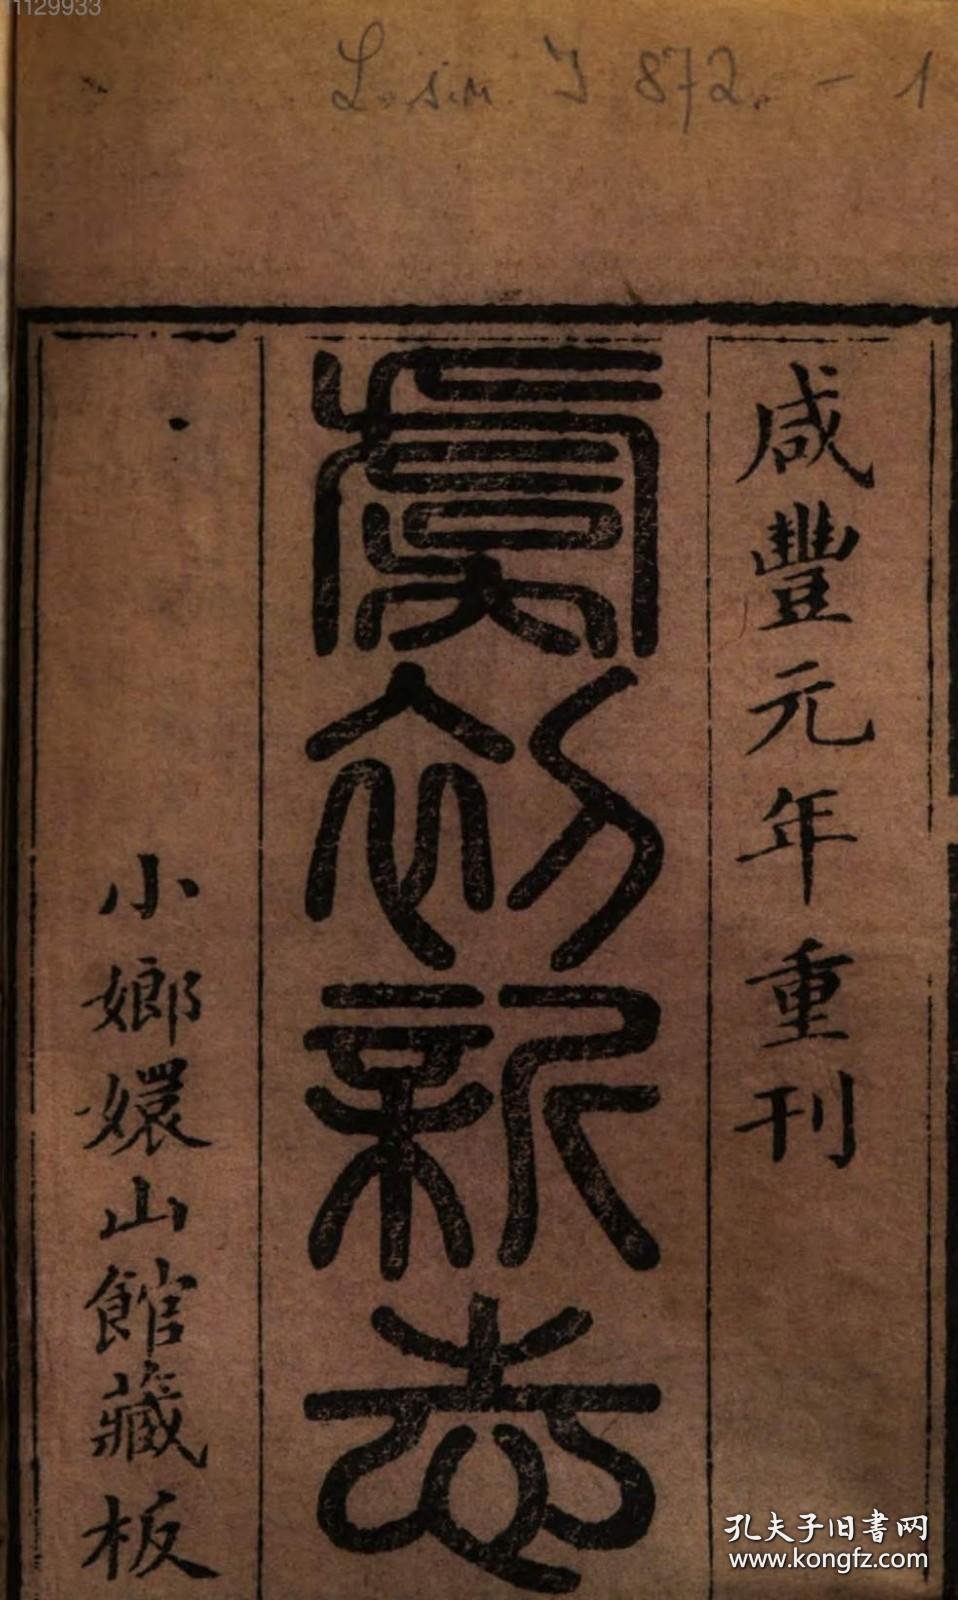 11129933
L. sin. I 872. - 1
咸豐元年重刊
虞初新志
小嫏嬛山館藏板
孔夫子旧書网
www.kongfz.com